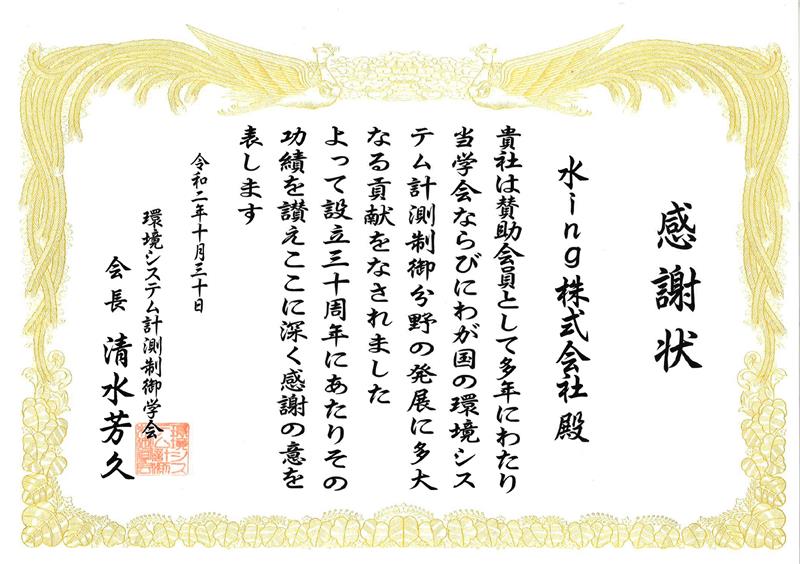 感謝状
水ing株式会社 殿
貴社は賛助会員として多年にわたり
当学会ならびにわが国の環境シス
テム計測制御分野の発展に多大
なる貢献をなされました
よって設立三十周年にあたりその
功績を讃えここに深く感謝の意を
表します
令和二年十月三十日
環境システム計測制御学会
会長 清水芳久